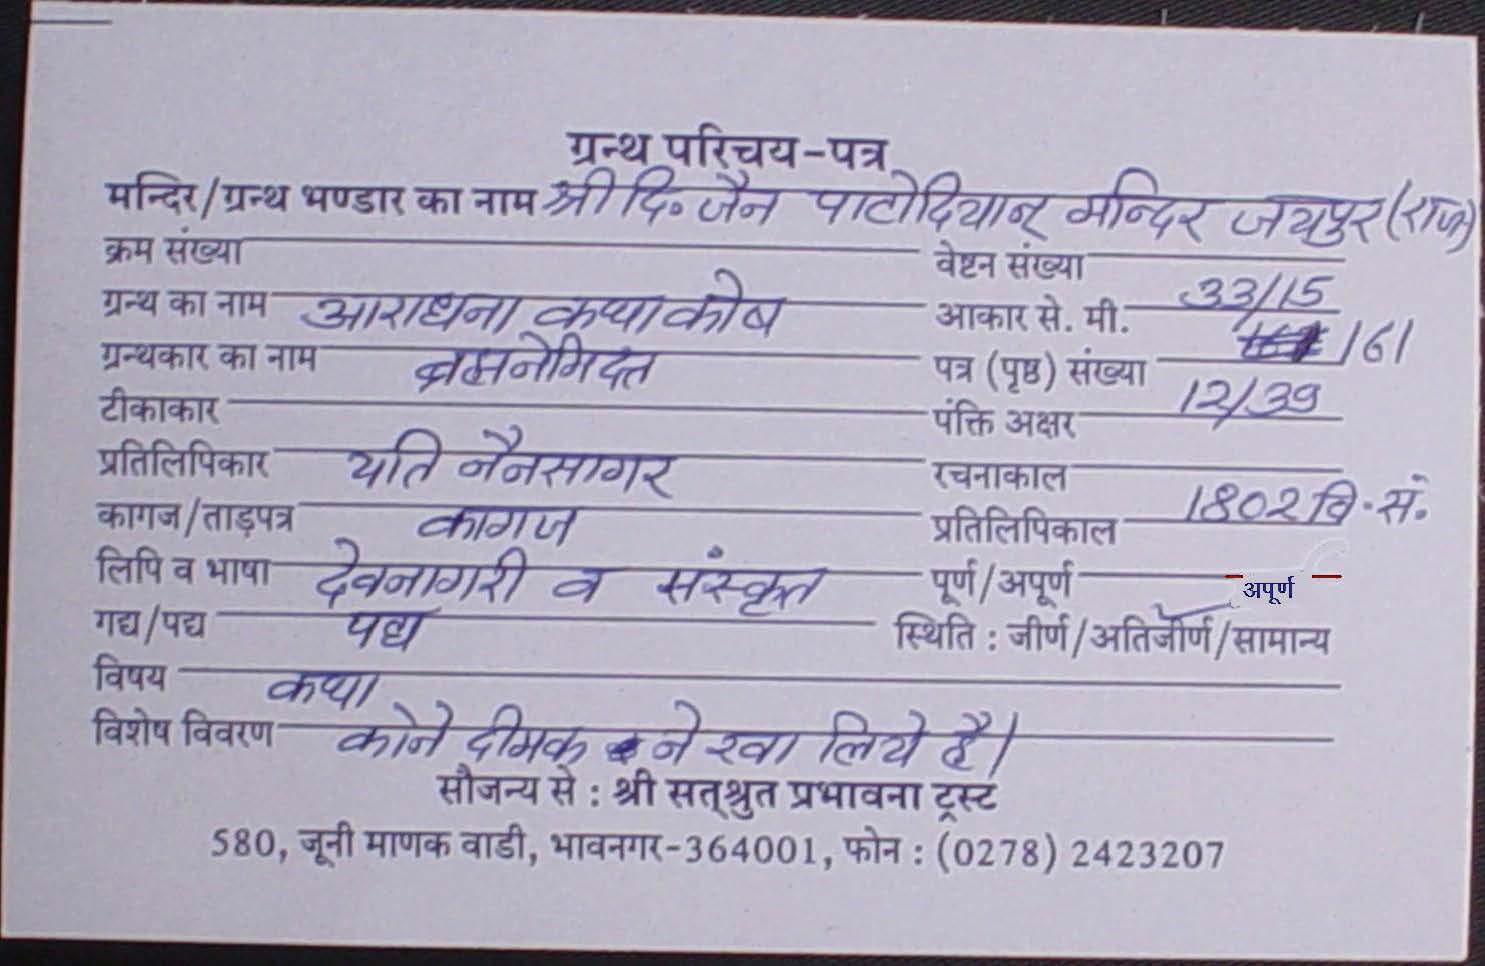 ग्रन्थ परिचय-पत्र
मन्दिर/ग्रन्थ भण्डार का नाम श्री दि. जैन पाटोदियान् मन्दिर जयपुर (राज)
क्रम संख्या वेष्टन संख्या
ग्रन्थ का नाम आराधना कथा कोष आकार से. मी. 33/15
ग्रन्थकार का नाम ब्रह्मनेमिदत्त पत्र (पृष्ठ) संख्या 161
टीकाकार पंक्ति अक्षर 12/39
प्रतिलिपिकार यति नैनसागर रचनाकाल
कागज/ताड़पत्र कागज प्रतिलिपिकाल 1802 वि. सं.
लिपि व भाषा देवनागरी व संस्कृत पूर्ण/अपूर्ण अपूर्ण
गद्य/पद्य पद्य स्थिति : जीर्ण/अतिजीर्ण/सामान्य
विषय कथा
विशेष विवरण कोने दीमक ने खा लिये है।
सौजन्य से : श्री सत्श्रुत प्रभावना ट्रस्ट
580, जूनी माणक वाडी, भावनगर-364001, फोन : (0278) 2423207